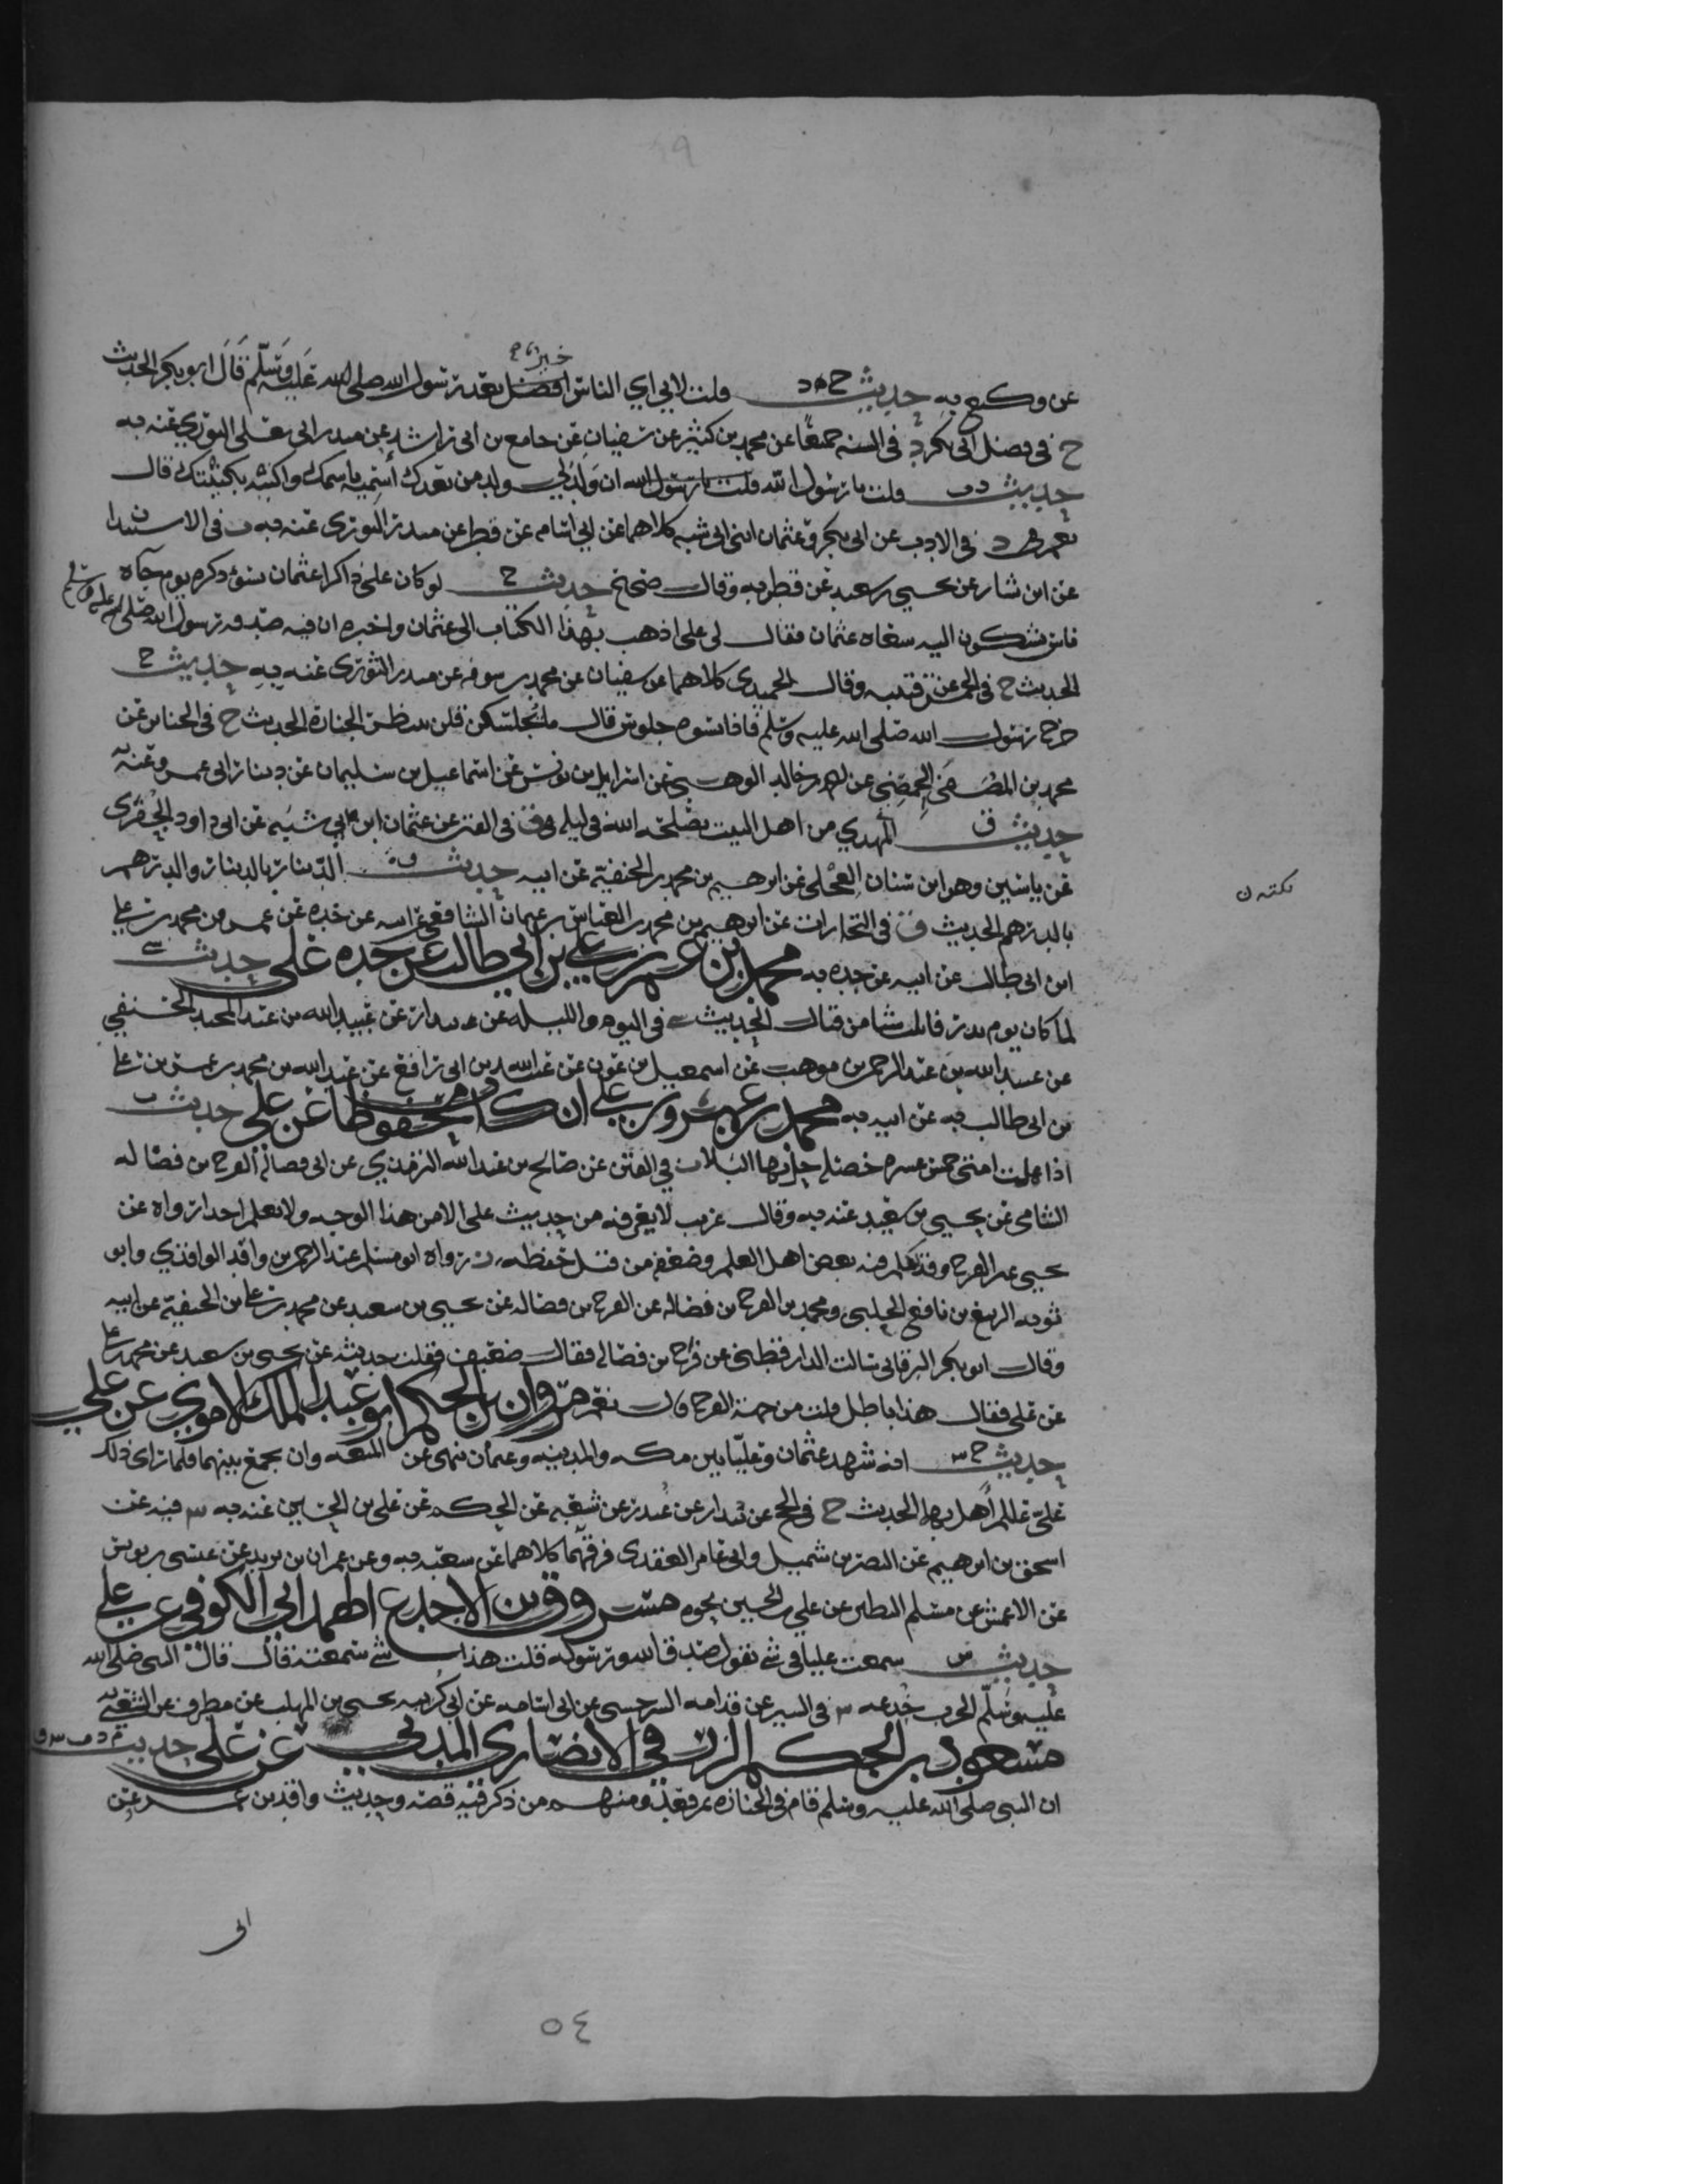 عن وكيع به حديث خ د قلت لابي اي الناس افضل بعد رسول الله صلى الله عليه وسلم قال ابو بكر الحديث
خير
خ في فضل ابي بكر د في السنه جميعا عن محمد بن كثير عن سفيان عن جامع بن ابي راشد عن منذر ابي يعلى الثوري عنه به
حديث د ت قلت يا رسول الله قلت يا رسول الله ان ولد لي ولد من بعدك أسميه باسمك واكنيه بكنيتك قال
نعم د في الادب عن ابي بكر وعثمان ابني ابي شيبه كلاهما عن ابي اسامه عن فطر عن منذر الثوري عنه به ت في الاستيذان
عن ابن بشار عن يحيى بن سعيد عن فطر به وقال صحيح حديث خ لو كان علي ذاكرا عثمان بسوء ذكره يوم جاه
ناس يشكون اليه سعاه عثمان فقال لي علي اذهب بهذا الكتاب الى عثمان واخبره ان فيه صدقه رسول الله صلى الله عليه وسلم
الحديث خ في الخمس عن قتيبه وقال الحميدي كلاهما عن سفيان عن محمد بن سوقه عن منذر الثوري عنه به حديث
خرج رسول الله صلى الله عليه وسلم فاذا نسوه جلوس قال ما يجلسكن قلن ننتظر الجنازة الحديث في الجنائز عن
محمد بن المصفى الحمصي عن احمد بن خالد الوهبي عن اسرايل بن يونس عن اسماعيل بن سليمان عن دينار ابي عمر عنه به
حديث ق المهدي من اهل البيت يصلحه الله في ليله ق في الفتن عن عثمان ابن ابي شيبه عن ابي داود الحفري
عن ياسين وهو ابن سنان العجلي عن ابرهيم بن محمد بن الحنفية عن ابيه حديث ق الدينار بالدينار والدرهم
نكته ن
بالدرهم الحديث ق في التجارات عن ابرهيم بن محمد بن العباس بن عثمان الشافعي عن ابيه عن جده عن عمر بن محمد بن علي
ابن ابي طالب عن ابيه عن جده به محمد بن عمر بن علي بن ابي طالب عن جده علي حديث سي
لما كان يوم بدر قاتلت شيا من قتال الحديث سي في اليوم والليله عن بندار عن عبيد الله بن عبد المجيد الحنفي
عن عبيد الله بن عبد الرحمن بن موهب عن اسمعيل بن عون عن عبد الله بن ابي رافع عن عبد الله بن محمد بن عمر بن علي
بن ابي طالب به عن ابيه به محمد بن عمرو بن علي ان كان محفوظا عن علي حديث ت
اذا عملت امتي خمس عشره خصله حل بها البلا ت في الفتن عن صالح بن عبد الله الترمذي عن ابي فضالة الفرج بن فضاله
الشامي عن يحيى بن سعيد عنه به وقال غريب لا يعرفه من حديث علي الا من هذا الوجه ولا نعلم احدا رواه عن
يحيى غير الفرج وقد تكلم فيه بعض اهل العلم وضعفه من قبل حفظه رواه ابو مسلم عبد الرحمن بن واقد الواقدي وابو
توبه الربيع بن نافع الحلبي ومحمد بن الفرج بن فضاله عن الفرج بن فضاله عن يحيى بن سعيد عن محمد بن علي بن الحنفية عن ابيه
وقال ابو بكر البرقاني سالت الدارقطني عن فرج بن فضاله فقال ضعيف فقلت حديثه عن يحيى بن سعيد عن محمد بن علي
عن علي فقال هذا باطل قلت من جهة الفرج قال نعم مروان بن الحكم ابو عبد الملك الاموي عن علي
حديث خ س انه شهد عثمان وعليا بين مكه والمدينه وعثمان نهى عن المتعه وان يجمع بينهما فلما راى ذلك
علي اهل بهما الحديث خ في الحج عن بندار عن غندر عن شعبه عن الحكم عن علي بن الحسين عنه به س فيه عن
اسحق بن ابرهيم عن النضر بن شميل وابي عامر العقدي فرقهما كلاهما عن شعبه به وعن عمران بن يزيد عن عيسى بن يونس
عن الاعمش عن مسلم البطين عن علي بن الحسين نحوه مسروق بن الاجدع الهمداني الكوفي عن علي
حديث س سمعت عليا في شي يقول صدق الله ورسوله قلت هذا شي سمعته قال قال النبي صلى الله
عليه وسلم الحرب خدعه س في السير عن قدامه السرخسي عن ابي اسامه عن ابي كدينه يحيى بن المهلب عن مطرف عن الشعبي عنه به
مسعود بن الحكم الزرقي الانصاري المدني عن علي حديث م د ت س ق
ان النبي صلى الله عليه وسلم قام في الجنازه ثم قعد ومنهم من ذكر فيه قصه وحديث واقد بن عمرو عن
٥٤